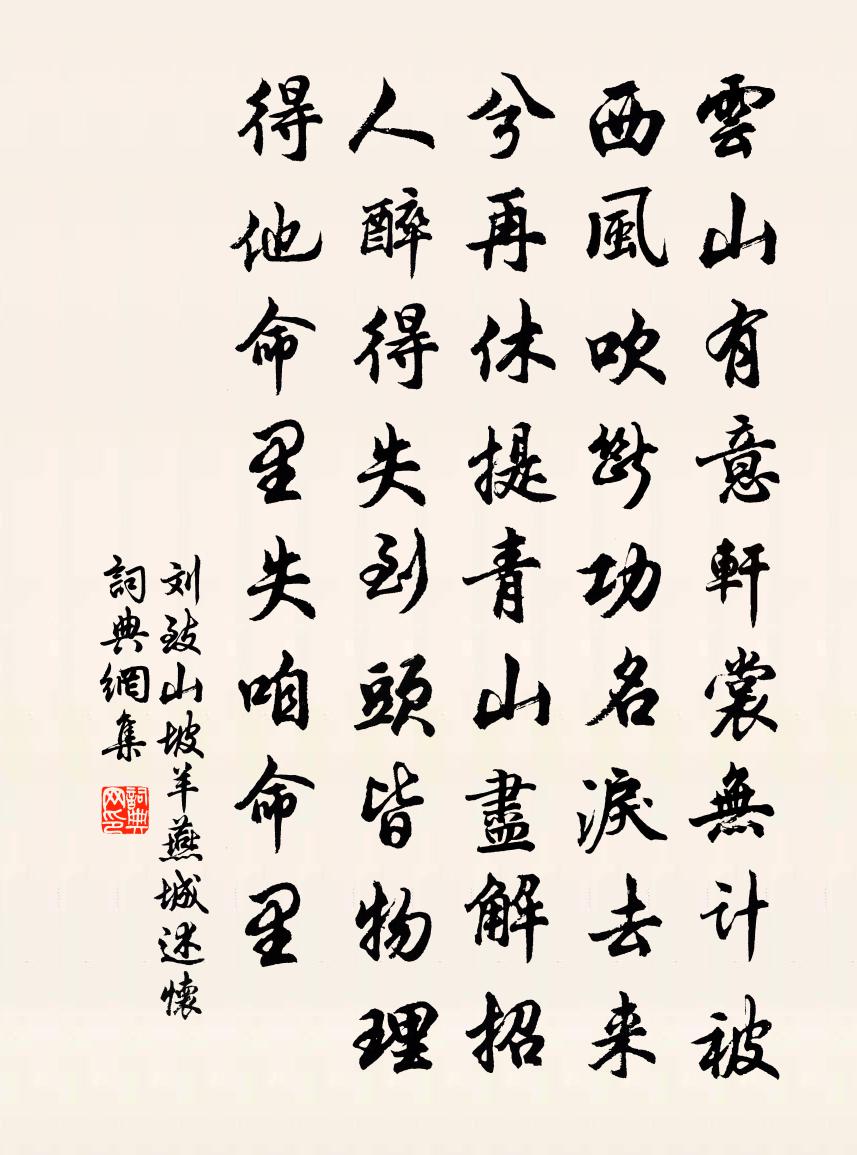 雲山有意軒裳無計被
西風吹斷功名淚去来
兮再休提青山盡解招
人醉得失到頭皆物理
得他命里失咱命里
刘致山坡羊燕城述懷
詞典網集
詞典网印